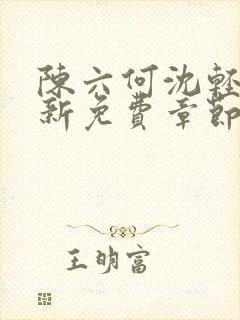 陳六何沈輕
新免費章節
王明富